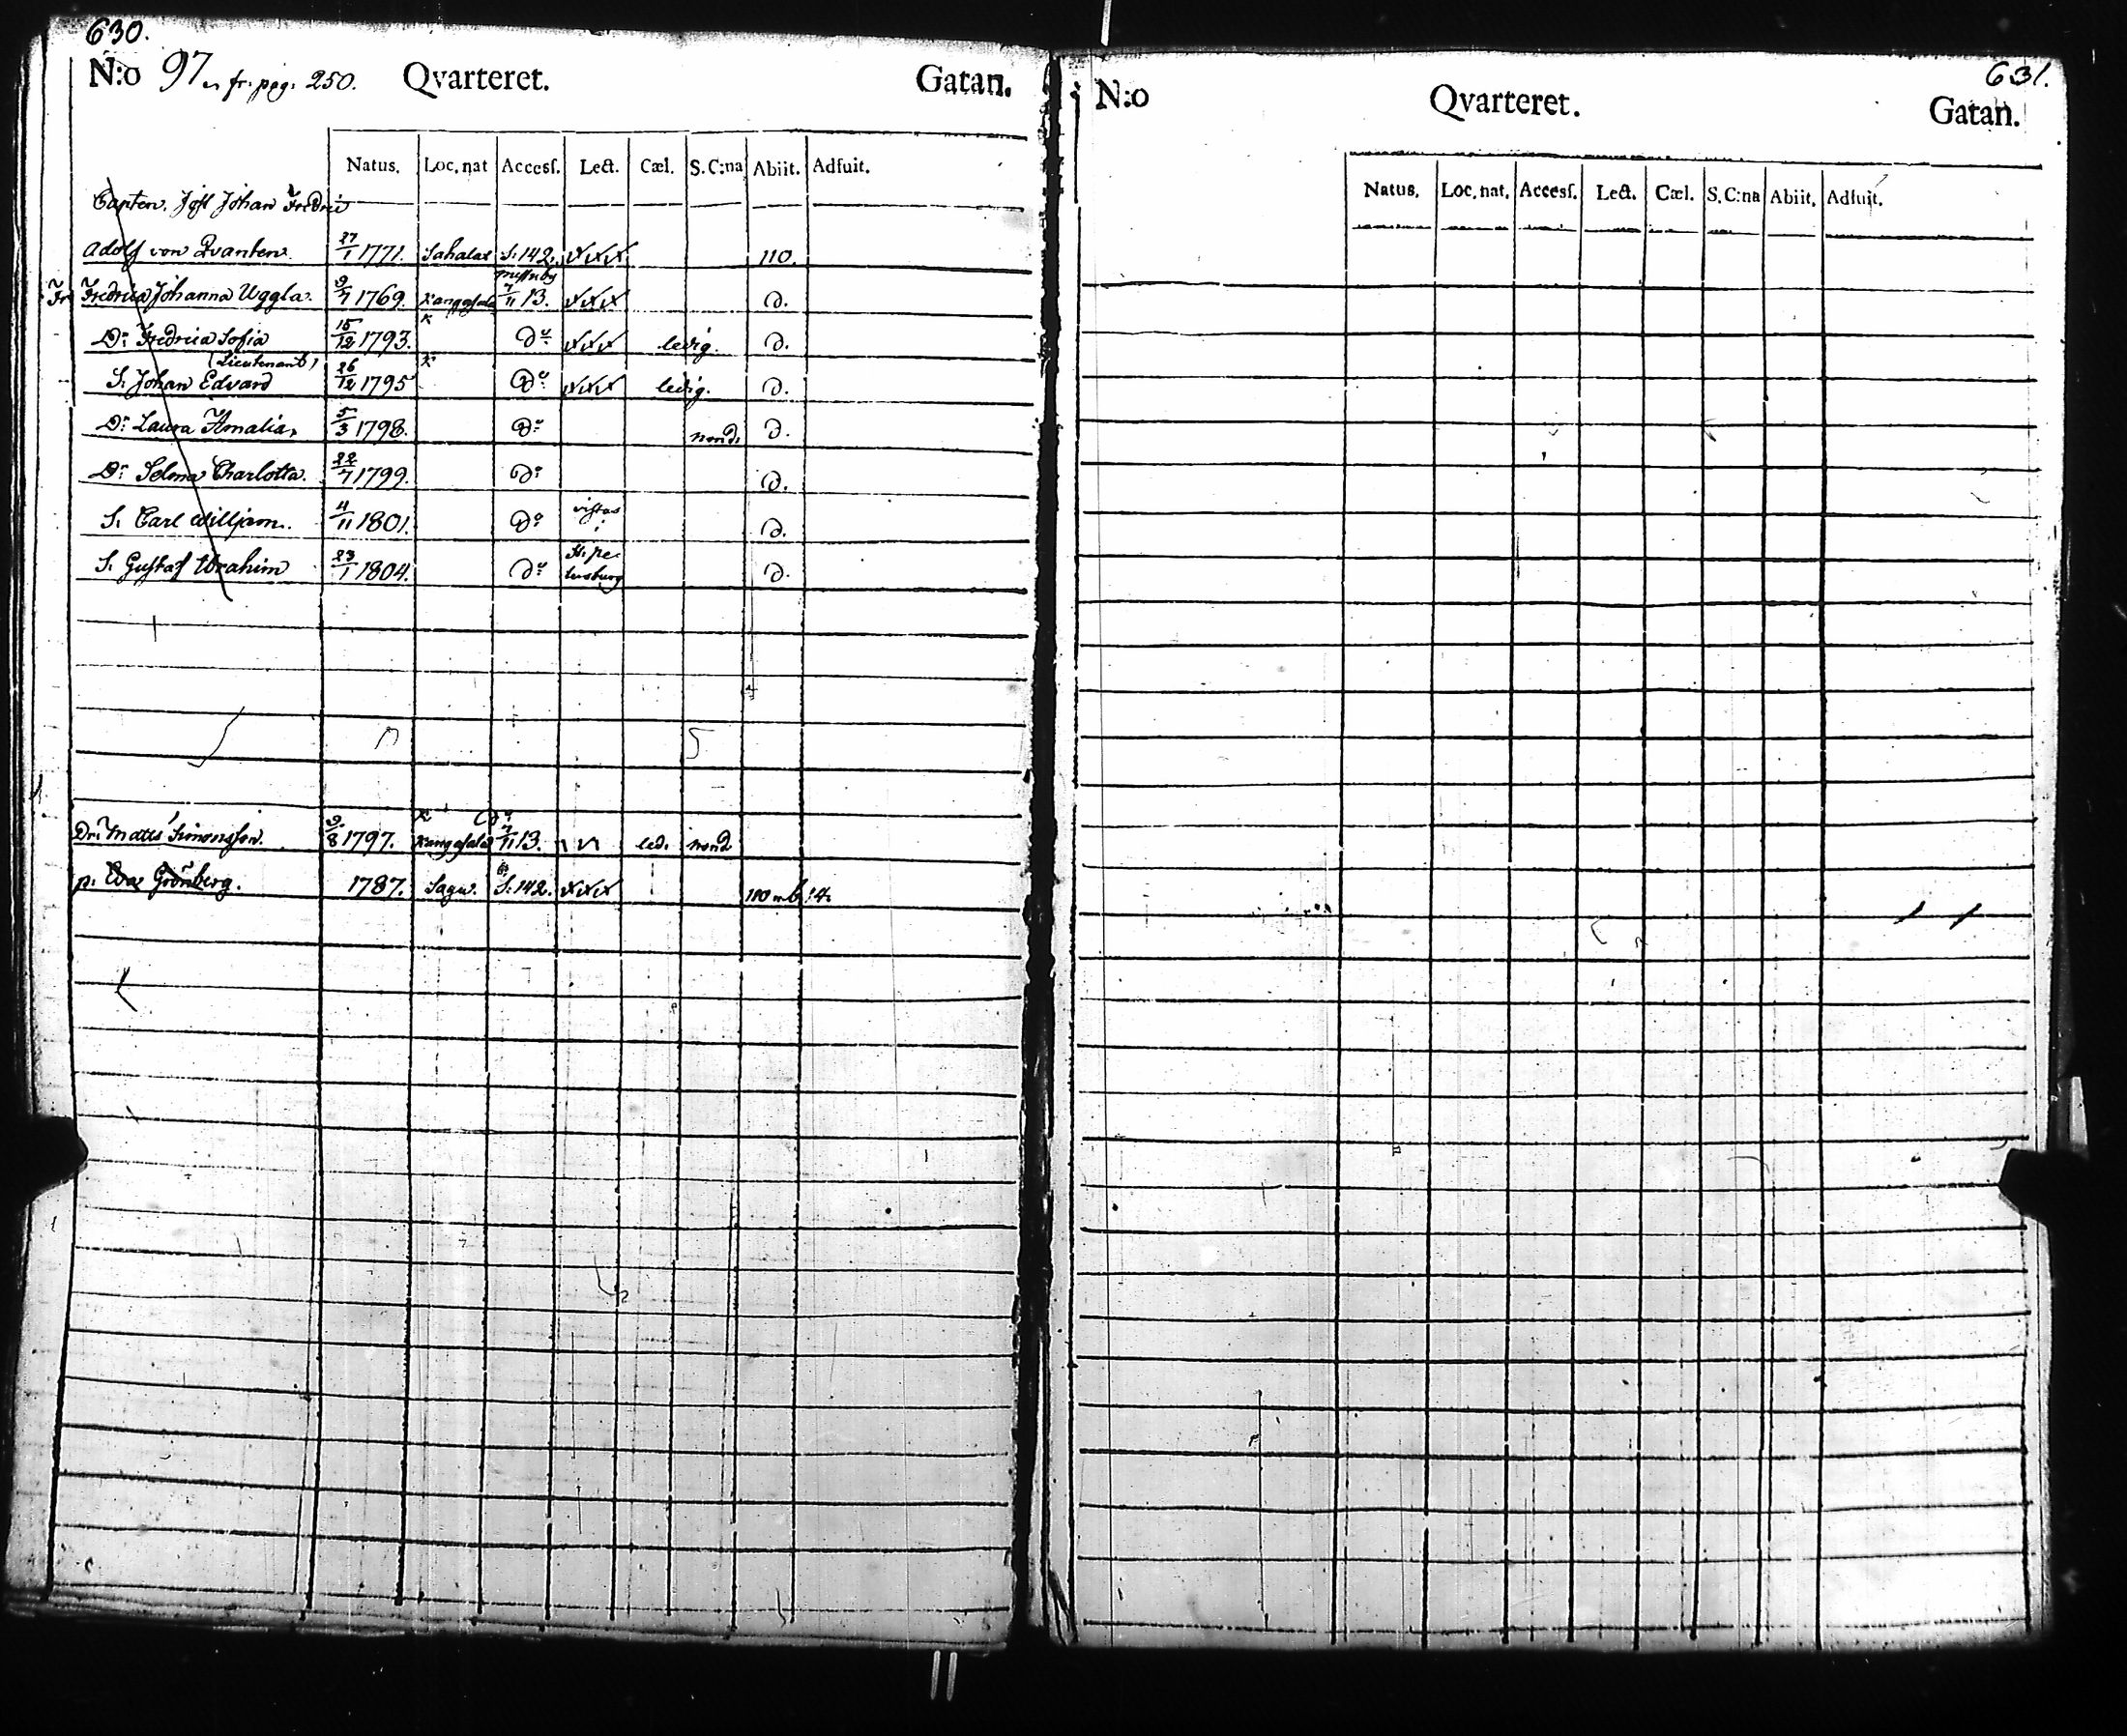 630.
N:o 97 fr. pag. 250. Qvarteret. Gatan.
Natus. Loc. nat Accesſ. Lect. Cæl. S. C:na Abiit. Adſuit.
Capten. Johan Fredric
Adolf von Qvanten. 27/1 1771. Sahalax S. 142. xxx 110.
Fr Fredrica Johanna Uggla. 9/7 1769. Kangasala 7/11 13. xxx D.
Dr Fredrica Sofia 15/12 1793. Do xxx ledig. D.
(Lieutenant)
S. Johan Edvard 26/12 1795 Do xxx ledig. D.
Dr Laura Amalia, 5/3 1798. Do nond. D.
Dr Selma Charlotta. 22/7 1799. Do D.
S. Carl Willjam. 4/11 1801. Do vistas i D.
S. Gustaf Abrahim 23/1 1804. Do St. pe- tersburg D.
Dr. Matts Simonsson. 9/8 1797. Kangasala 7/11 13. led. nond
p. Eva Grönberg. 1787. Sagu. S. 142. xxx 110 14.
631.
N:o Qvarteret. Gatan.
Natus. Loc. nat. Accesſ. Lect. Cæl. S. C:na Abiit. Adſuit.